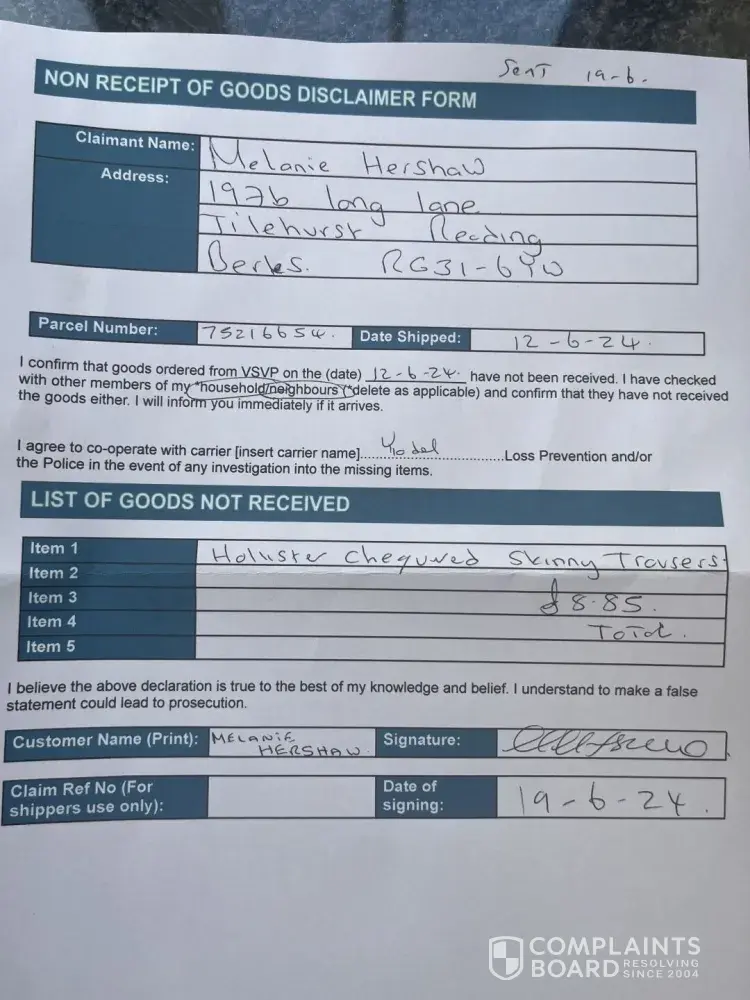 Sent 19-6.
NON RECEIPT OF GOODS DISCLAIMER FORM
Claimant Name: Melanie Hershaw
Address: 197b long lane
Tilehurst Reading
Berks. RG31-6YW
Parcel Number: 75216654. Date Shipped: 12-6-24.
I confirm that goods ordered from VSVP on the (date) 12-6-24. have not been received. I have checked
with other members of my *household/neighbours (*delete as applicable) and confirm that they have not received
the goods either. I will inform you immediately if it arrives.
I agree to co-operate with carrier [insert carrier name]....Yodel....Loss Prevention and/or
the Police in the event of any investigation into the missing items.
LIST OF GOODS NOT RECEIVED
Item 1 Holister Chequred Skinny Trousers.
Item 2
Item 3 £8.85.
Item 4 Total.
Item 5
I believe the above declaration is true to the best of my knowledge and belief. I understand to make a false
statement could lead to prosecution.
Customer Name (Print): MELANIE HERSHAW Signature:
Claim Ref No (For
shippers use only):
Date of
signing: 19-6-24.
COMPLAINTS
BOARD RESOLVING
SINCE 2004